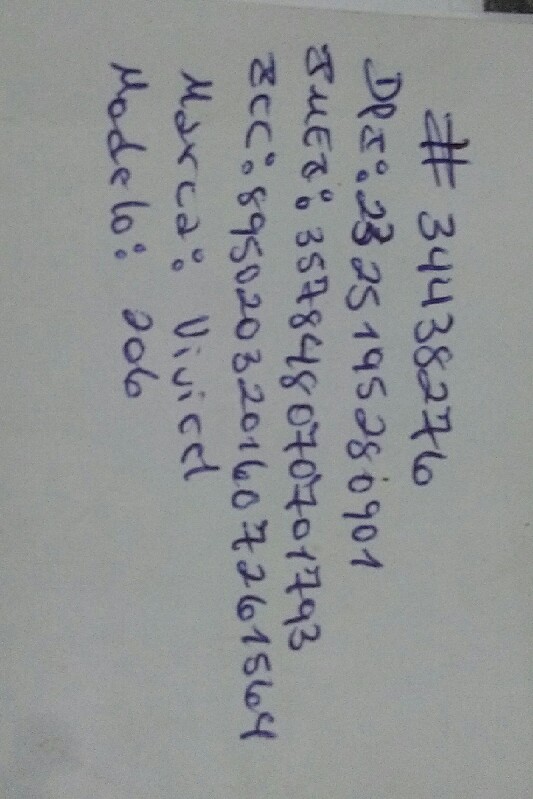 # 34438276
DPI: 2325195280901
IMEI: 357848070701793
ICC: 8950203201607261564
Marca: Vivicel
Modelo: 206